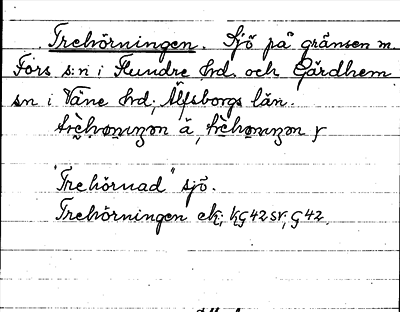 Trehörningen. Sjö på gränsen m.
Fors s:n i Flundre hd. och Gärdhem
sn i Väne hd, Älfsborgs län.
ä,
"Trehörnad" sjö.
Trehörningen ek; kG42SV, G42.